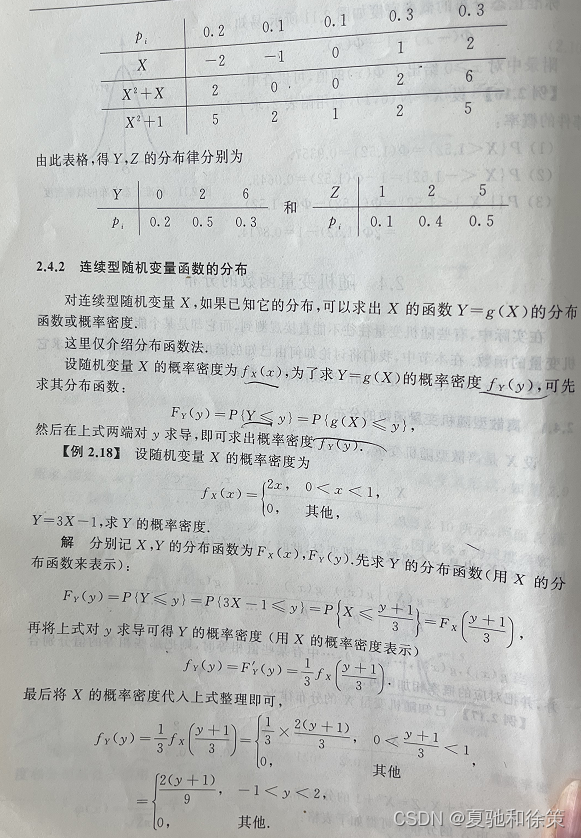 pᵢ 0.2 0.1 0.1 0.3 0.3
X −2 −1 0 1 2
X²+X 2 0 0 2 6
X²+1 5 2 1 2 5
由此表格,得 Y,Z 的分布律分别为
Y 0 2 6 和 Z 1 2 5
pᵢ 0.2 0.5 0.3 pᵢ 0.1 0.4 0.5
2.4.2 连续型随机变量函数的分布
对连续型随机变量 X,如果已知它的分布,可以求出 X 的函数 Y=g(X)的分布
函数或概率密度.
这里仅介绍分布函数法.
设随机变量 X 的概率密度为 f_X(x),为了求 Y=g(X)的概率密度 f_Y(y),可先
求其分布函数:
F_Y(y)=P{Y≤y}=P{g(X)≤y},
然后在上式两端对 y 求导,即可求出概率密度 f_Y(y).
【例 2.18】 设随机变量 X 的概率密度为
f_X(x)={2x, 0<x<1,
0, 其他,
Y=3X−1,求 Y 的概率密度.
解 分别记 X,Y 的分布函数为 F_X(x),F_Y(y).先求 Y 的分布函数(用 X 的分
布函数来表示):
F_Y(y)=P{Y≤y}=P{3X−1≤y}=P{X≤(y+1)/3}=F_X((y+1)/3),
再将上式对 y 求导可得 Y 的概率密度(用 X 的概率密度表示)
f_Y(y)=F′_Y(y)=1/3 f_X((y+1)/3).
最后将 X 的概率密度代入上式整理即可,
f_Y(y)=1/3 f_X((y+1)/3)={1/3×2(y+1)/3, 0<(y+1)/3<1,
0, 其他
={2(y+1)/9, −1<y<2,
0, 其他.
CSDN @夏驰和徐策